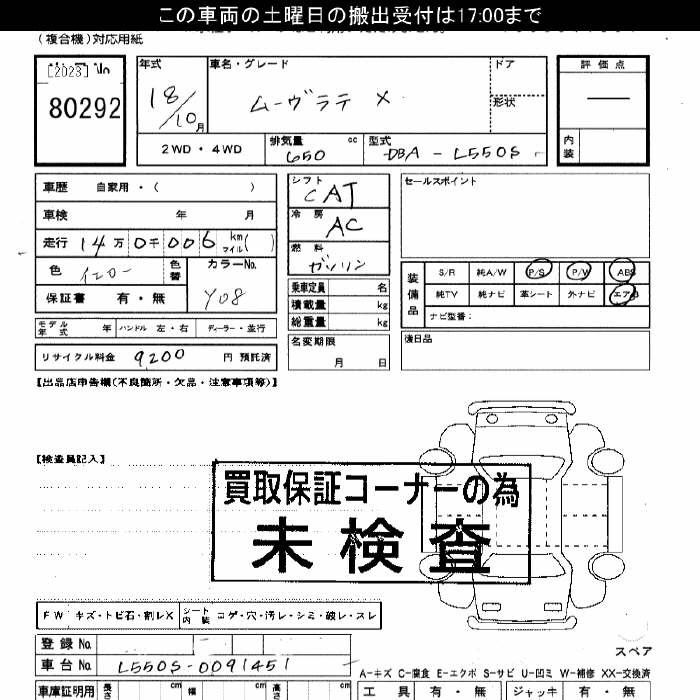 この車両の土曜日の搬出受付は17:00まで
(複合機)対応用紙
[2023] No
80292
年式
18/10月
車名・グレード
ムーヴラテ X
ドア
形状
評価点
―
内装
2WD・4WD
排気量 cc
650
型式
DBA - L550S
車歴 自家用・( )
車検 年 月
走行 14万0千006 km マイル( )
色 イエロー 色替
カラーNo.
Y08
保証書 有・無
モデル年式 年 ハンドル 左・右 ディーラー・並行
リサイクル料金 9200 円 預託済
シフト
CAT
冷房
AC
燃料
ガソリン
乗車定員 名
積載量 kg
総重量 kg
名変期限
月 日
セールスポイント
装備品
S/R 純A/W P/S P/W ABS
純TV 純ナビ 革シート 外ナビ エアB
ナビ型番:
後日品
【出品店申告欄(不良箇所・欠品・注意事項等)】
【検査員記入】
買取保証コーナーの為
未検査
FW キズ・トビ石・割レX シート内装 コゲ・穴・汚レ・シミ・破レ・スレ
登録No.
車台No. L550S-0091451
スペア
A-キズ C-腐食 E-エクボ S-サビ U-凹ミ W-補修 XX-交換済
車庫証明用 長さ cm 幅 cm 高さ cm
工具 有・無 ジャッキ 有・無